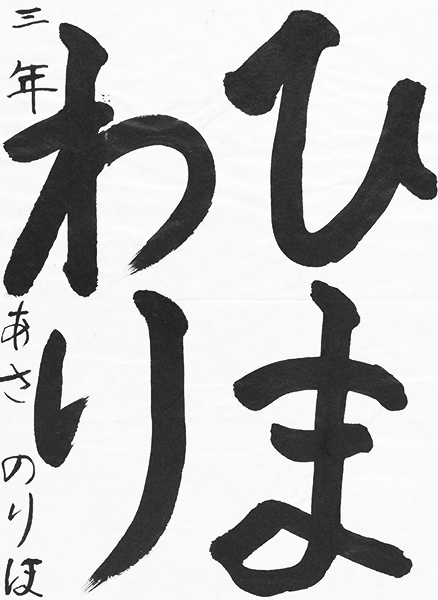 ひま
わり
三年 あさ のりほ